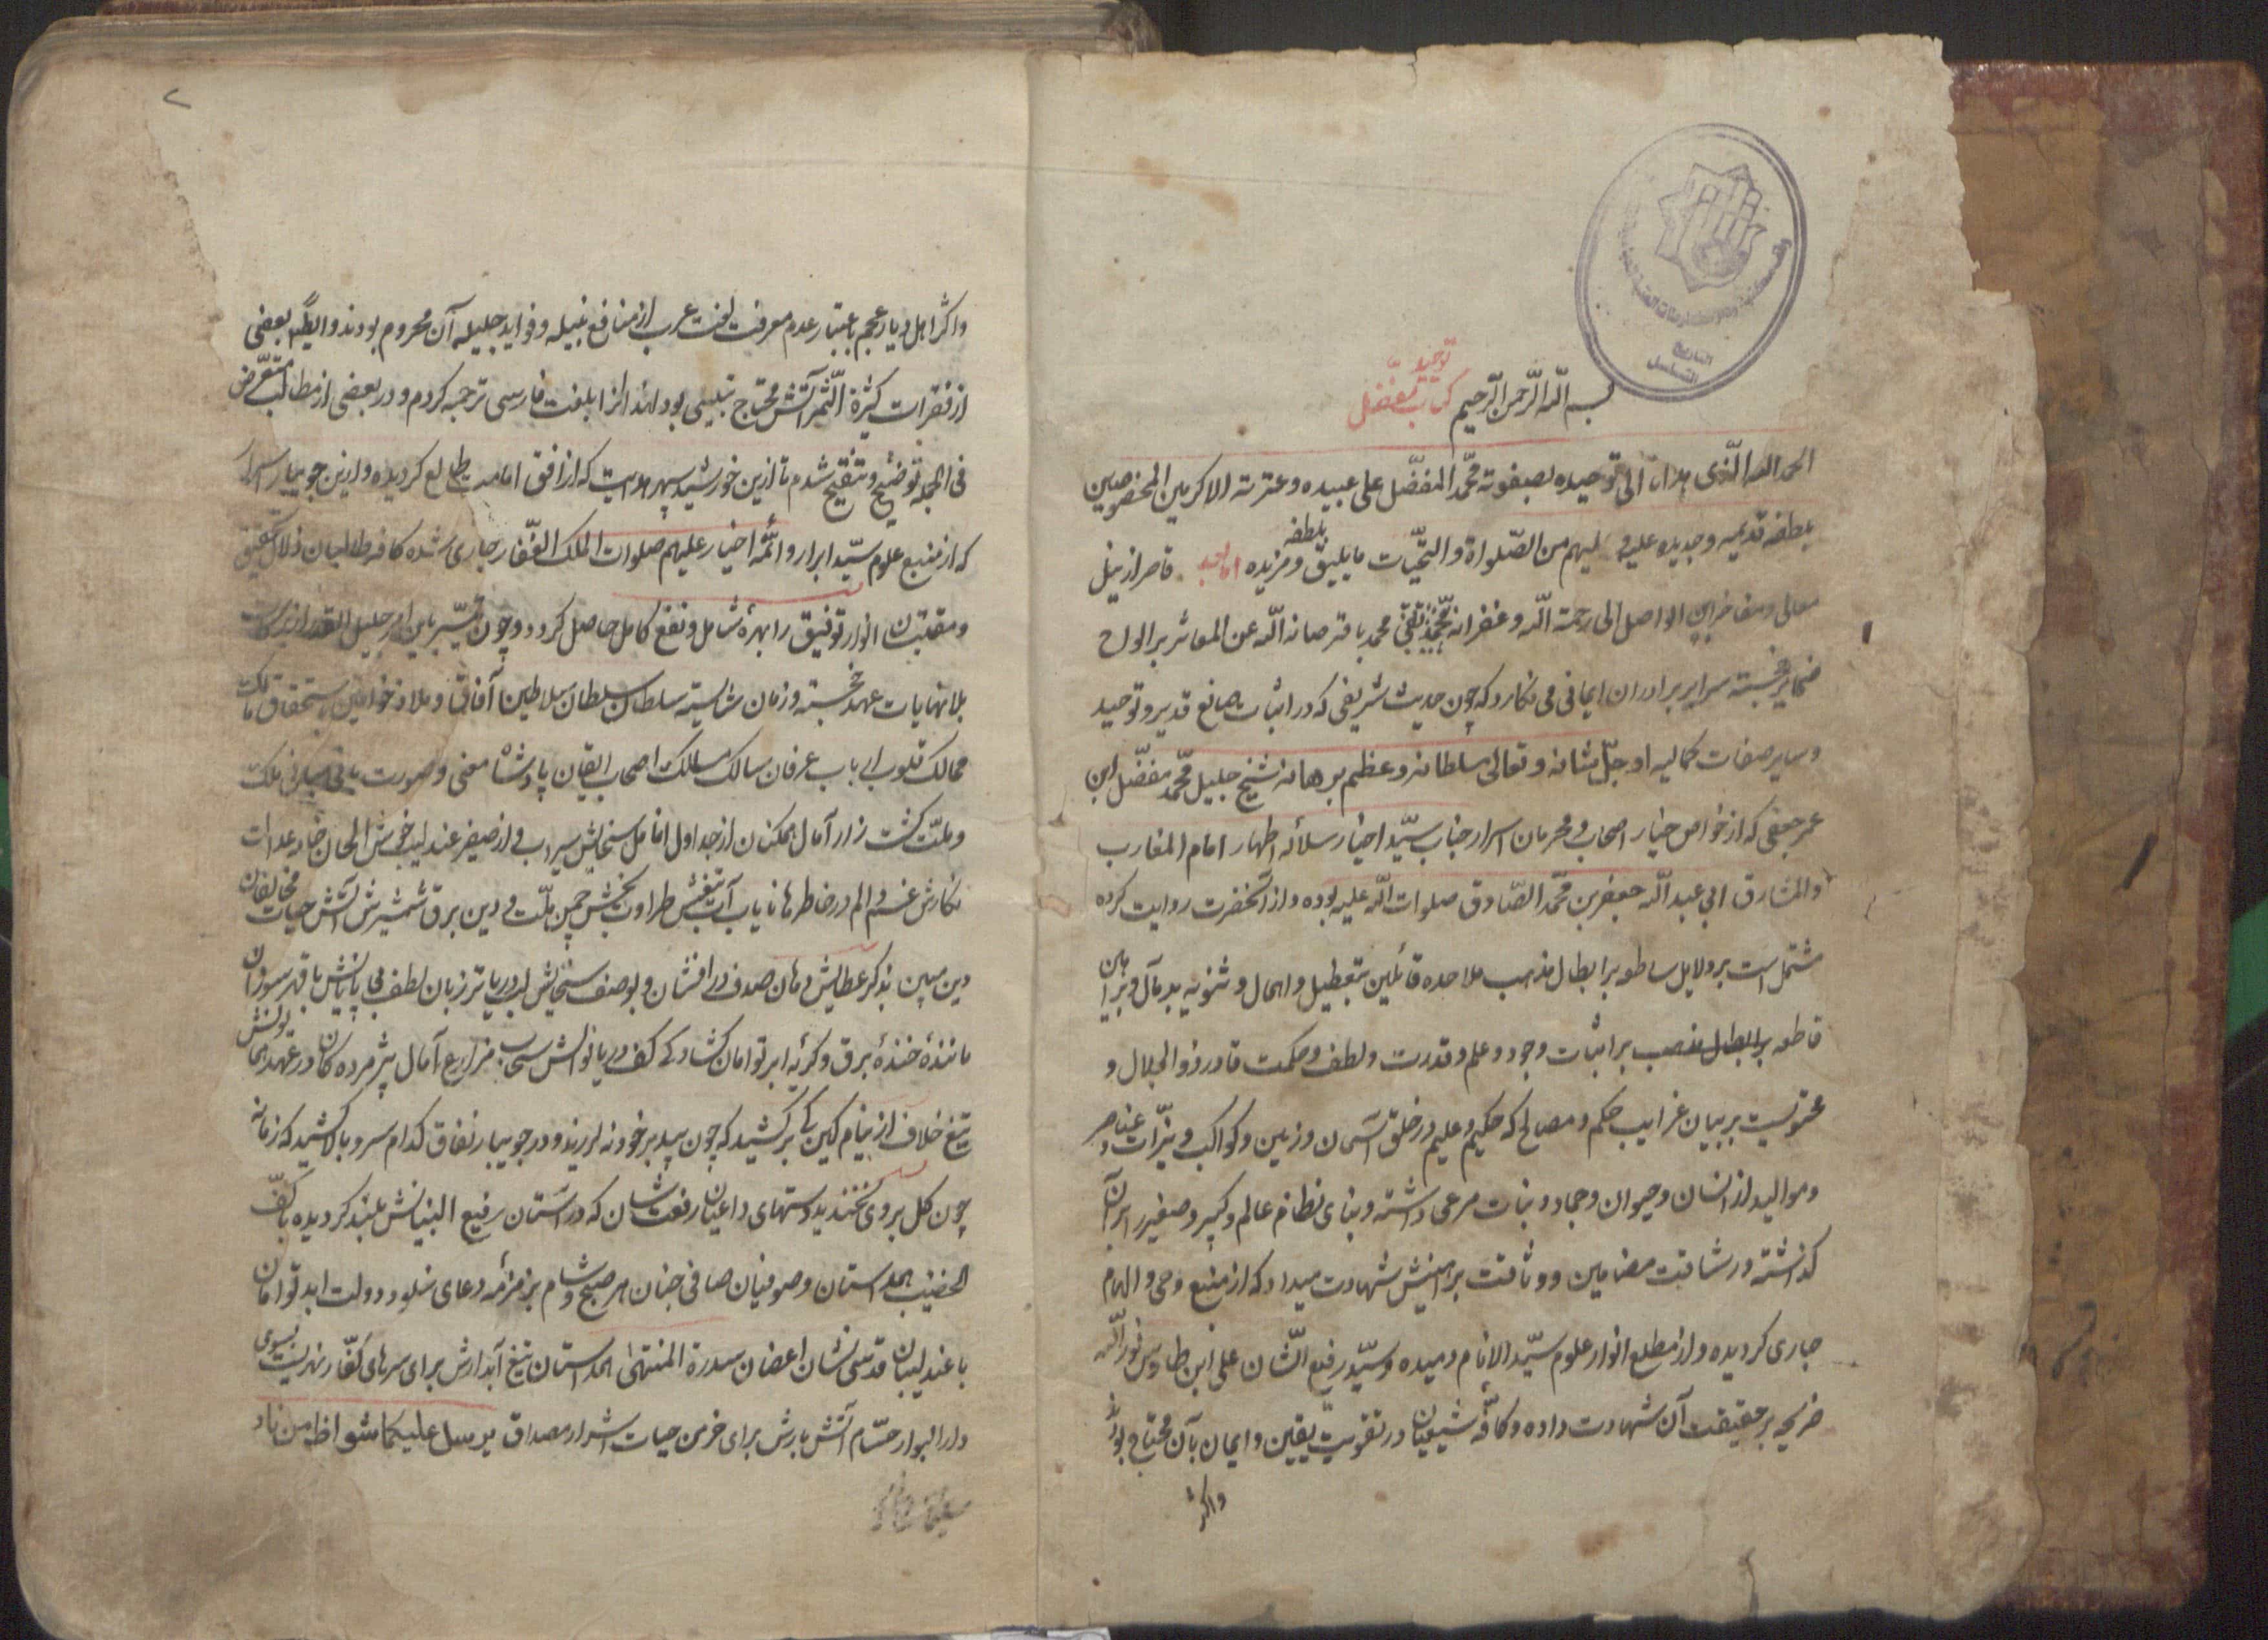 توحيد
كتاب مفضل
بسم الله الرحمن الرحيم
الحمد لله الذى هدانا الى توحيده بصفوته محمد المفضل على عبيده وعترته الاكرمين المخصوصين
بلطفه قديمه وجديده عليه وعليهم من الصلواة والتحيات ما يليق بلطفه ومزيده اما بعد قاصر از نيل
معالى ومفاخر ابن الواصل الى رحمة الله وغفرانه محمد تقى محمد باقر صانه الله عن المعاثر بر الواح
ضماير خجسته سراير برادران ايمانى مى نكارد كه چون حديث شريفى كه در اثبات صانع قدير وتوحيد
وساير صفات كماليه او جل شانه وتعالى سلطانه وعظم برهانه شيخ جليل محمد مفضل ابن
عمر جعفى كه از خواص اصحاب ومحرمان اسرار جناب سيد اخيار سلاله اطهار امام المغارب
والمشارق ابى عبد الله جعفر بن محمد الصادق صلوات الله عليه بوده واز آنحضرت روايت كرده
مشتمل است بر دلايل ساطعه بر ابطال مذهب ملاحده قائلين بتعطيل واهمال وثنويه بدمآل وبراهين
قاطعه بر ابطال مذهب بر اثبات وجود وعلم وقدرت ولطف وحكمت قادر ذو الجلال و
محتويست بر بيان غرايب حكم ومصالح كه حكيم عليم در خلق آسمان وزمين وكواكب ونيرات وعناصر
ومواليد از انسان وحيوان وجماد ونبات مرعى داشته وبناى نظام عالم كبير وصغير را بر آن
كذاشته ورشاقت مضامين ووثاقت براهينش شهادت ميداد كه از منبع وحى والهام
جارى كرديده واز مطلع انوار علوم سيد الانام دميده وسيد رفيع الشان على ابن طاوس نور الله
ضريحه بر حقيقت آن شهادت داده وكافه شيعيان در تقويت يقين وايمان بآن محتاج بودند
واكثر
٢
واكثر اهل ديار عجم باعتبار عدم معرفت لغت عرب از منافع نبيله وفوايد جليله آن محروم بودند وايضا بعضى
از فقرات كثيرة الثمراتش محتاج تبيينى بود لهذا آنرا بلغت فارسى ترجمه كردم ودر بعضى از مطالب متعرض
فى الجمله توضيح وتنقيح شدم تا ازين خورشيد سپهر هدايت كه از افق امامت طالع كرديده وازين جويبار اسرار
كه از منبع علوم سيد ابرار وائمه اخيار عليهم صلوات الملك الغفار جارى شده كافه طالبان زلال تحقيق
ومقتبسان انوار توفيق را بهرهٔ شامل ونفع كامل حاصل كردد وچون تيسر اين امر جليل القدر از بركات
بلانهايات عهد خجسته وزمان شايسته سلطان سلطان سلاطين آفاق وملاذ خواقين باستحقاق مالك
ممالك قلوب ارباب عرفان سالك مسالك اصحاب ايقان پادشاه معنى وصورت بانى مبانى ملك
وملت كشت زار آمال همكنان از جداول انامل سخايش سيراب واز صفير عندليب خوش الحان خامه عدالت
نكارش غم والم در خاطرها ناياب آب تيغش طراوت بخش چمن ملت ودين برق شمشيرش آتش حيات مخالفان
دين مبين بذكر عطايش دهان صدف در افشان وبوصف سخايش لب دريا تر زبان لطف بى پايانش با قهر سوزان
مانند خندهٔ برق وكريه ابر توامان كشاد كى كف دريا نوالش سحاب مزارع آمال پژمرده كان در عهد همايونش
تيغ خلاف از نيام كين كه بركشيد كه چون بيد بر خود نه لرزيد ودر جويبار نفاق كدام سرو بالا كشيد كه زمانه
چون كل بروى نخنديد دستهاى داعيان رفعت شان كه در آستان رفيع البنيانش بلند كرديده با كف
الخضيب همداستان وصوفيان صافى جنان هر صبح وشام بزمزمه دعاى خلود دولت ابد توامان
با عندليبان قدسى نشان اغصان سدرة المنتهى همداستان تيغ آبدارش براى سرهاى كفار نهريست بسوى
دار البوار حسام آتش بارش براى خرمن حيات اشرار مصداق يرسل عليكما شواظ من نار